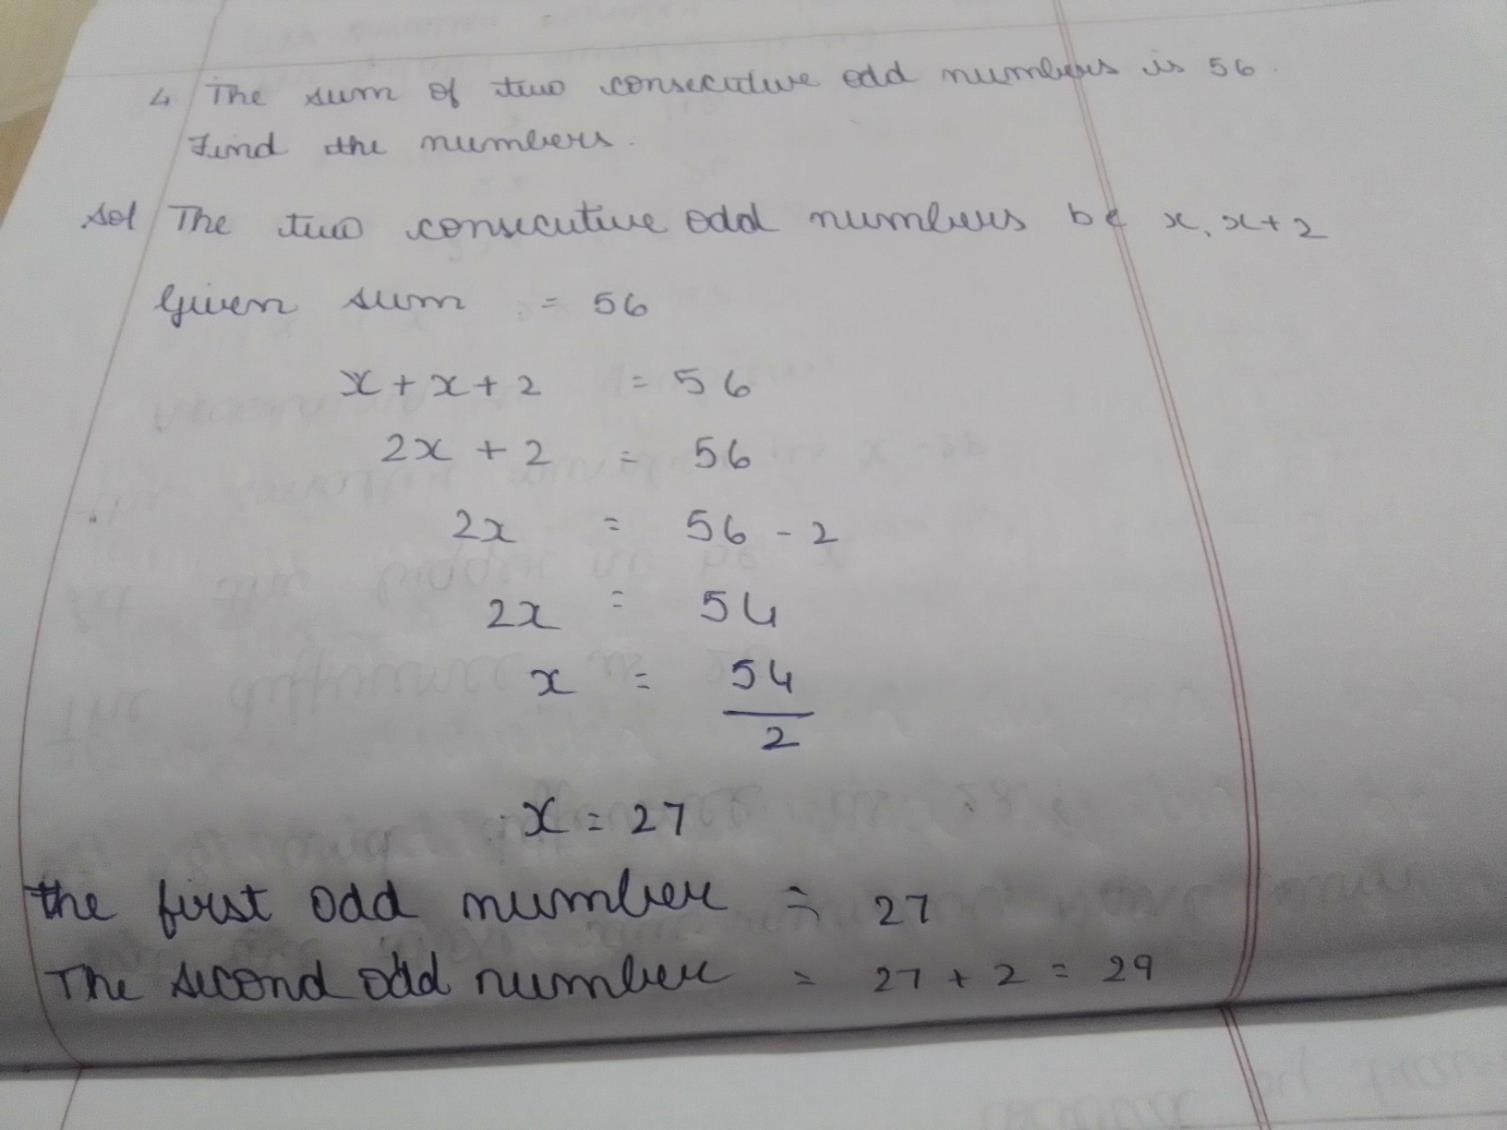 4 The sum of two consecutive odd numbers is 56.
Find the numbers.
Sol The two consecutive odd numbers be x, x+2
Given sum = 56
x + x + 2 = 56
2x + 2 = 56
2x = 56 - 2
2x = 54
x = 54
2
x = 27
the first odd number = 27
The second odd number = 27 + 2 = 29